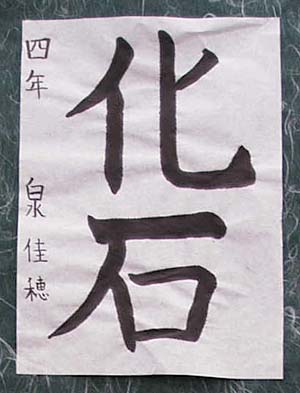 化石
四年 泉佳穂